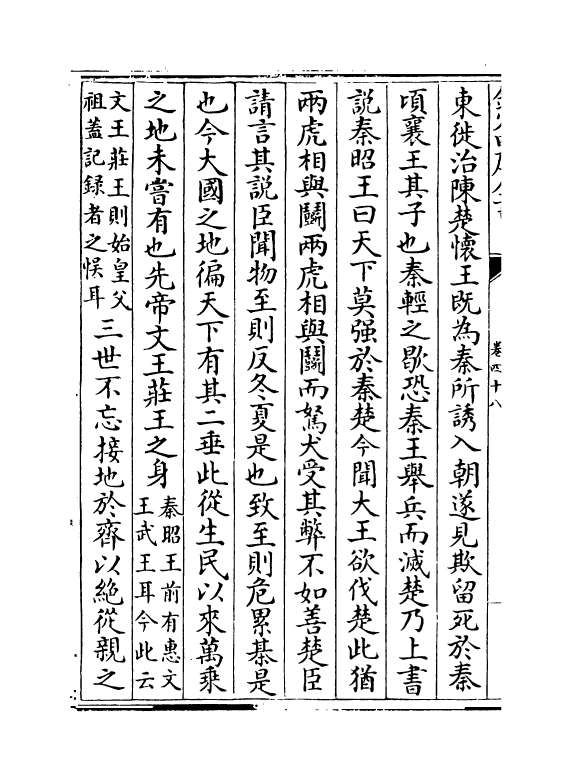 卷四十八
東徙治陳楚懷王既為秦所誘入朝遂見欺留死於秦
頃襄王其子也秦輕之歇恐秦王舉兵而滅楚乃上書
説秦昭王曰天下莫强於秦楚今聞大王欲伐楚此猶
兩虎相與鬭兩虎相與鬭而駑犬受其弊不如善楚臣
請言其説臣聞物至則反冬夏是也致至則危累棊是
也今大國之地徧天下有其二垂此從生民以來萬乘
之地未嘗有也先帝文王莊王之身秦昭王前有惠文王武王耳今此云
文王莊王則始皇父祖蓋記録者之悮耳三世不忘接地於齊以絶從親之